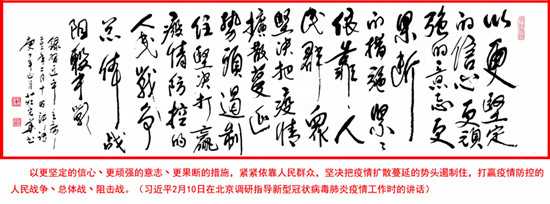 以更坚定
的信心更顽
强的意志更
果断
的措施紧紧
依靠人
民群眾
坚决把疫情
擴散蔓延
势頭遏制
住坚决打赢
疫情防控的
人民战争
总体战
阻擊战
录习近平主席
以更坚定的信心、更顽强的意志、更果断的措施，紧紧依靠人民群众，坚决把疫情扩散蔓延的势头遏制住，打赢疫情防控的
人民战争、总体战、阻击战。（习近平2月10日在北京调研指导新型冠状病毒肺炎疫情工作时的讲话）